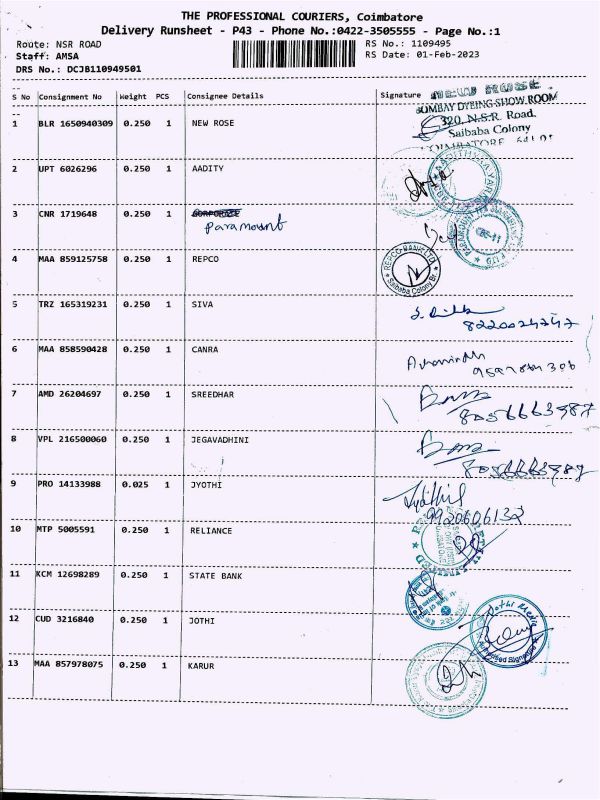 THE PROFESSIONAL COURIERS, Coimbatore
Delivery Runsheet - P43 - Phone No.:0422-3505555 - Page No.:1
Route: NSR ROAD RS No.: 1109495
Staff: AMSA RS Date: 01-Feb-2023
DRS No.: DCJB110949501
S No Consignment No Weight PCS Consignee Details Signature
NEW ROSE
BOMBAY DYEING SHOW ROOM
320, N.S.R. Road,
Saibaba Colony
1 BLR 1650940309 0.250 1 NEW ROSE
2 UPT 6026296 0.250 1 AADITY
3 CNR 1719648 0.250 1
Paramount
4 MAA 859125758 0.250 1 REPCO
REPCO BANK LTD
Saibaba Colony Br.
5 TRZ 165319231 0.250 1 SIVA
6 MAA 858590428 0.250 1 CANRA
7 AMD 26204697 0.250 1 SREEDHAR
8056663987
8 VPL 216500060 0.250 1 JEGAVADHINI
9 PRO 14133988 0.025 1 JYOTHI
9920606132
10 MTP 5005591 0.250 1 RELIANCE
11 KCM 12698289 0.250 1 STATE BANK
12 CUD 3216840 0.250 1 JOTHI
Jothi Media
Authorised Signatory
13 MAA 857978075 0.250 1 KARUR